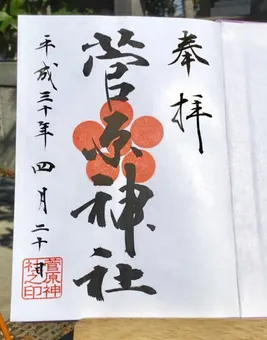 奉拝
菅原神社
平成三十年四月二十日
菅原神
社之印